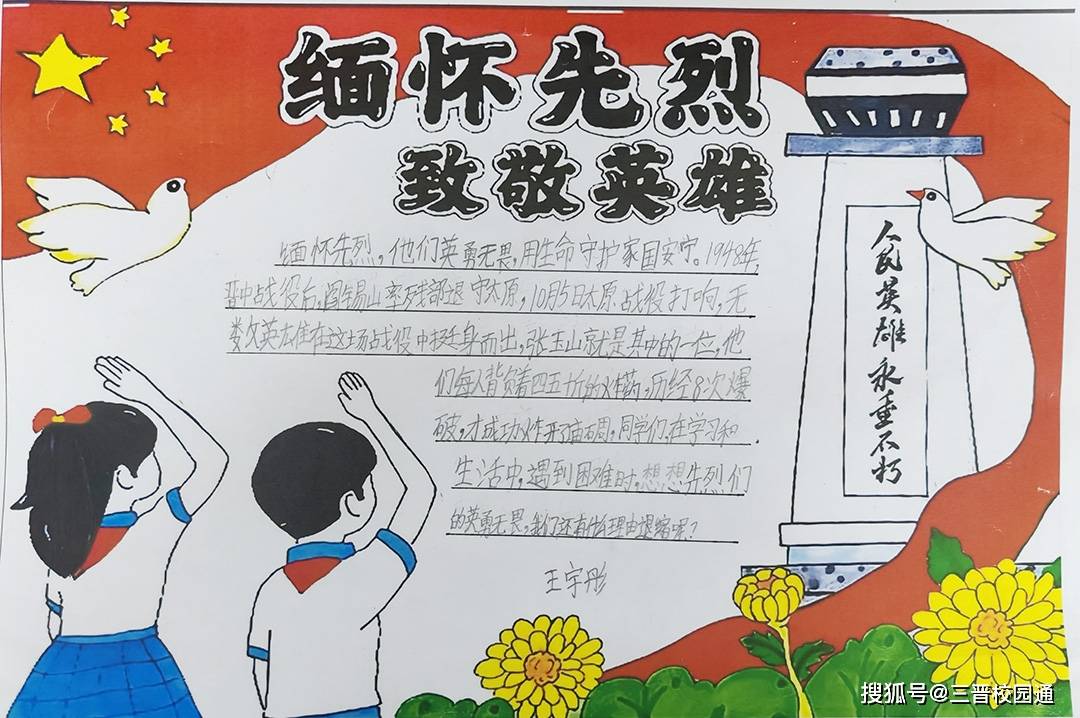 缅怀先烈
致敬英雄
缅怀先烈，他们英勇无畏，用生命守护家国安宁。1948年，
晋中战役后，阎锡山率残部退守太原，10月5日太原战役打响，无
数英雄在这场战役中挺身而出，张玉山就是其中的一位，他
们每人背负着四五十斤的炸药，历经8次爆
破，才成功炸开了庙碉。同学们，在学习和
生活中，遇到困难时，想想先烈们
的英勇无畏，我们还有什么理由退缩呢？
王宇彤
人民英雄永垂不朽
搜狐号@三晋校园通